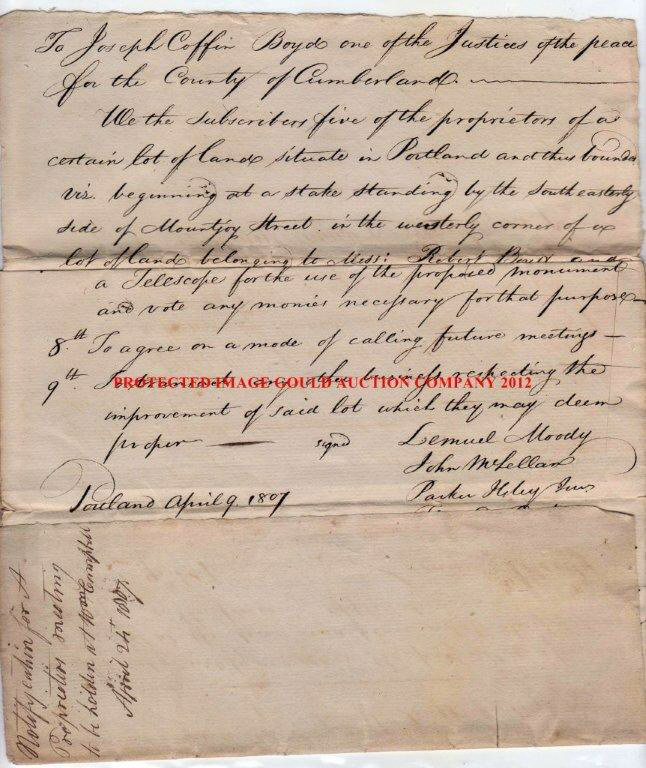 To Joseph Coffin Boyd one of the Justices of the peace
for the County of Cumberland.
We the subscribers five of the proprietors of a
certain lot of land situate in Portland and thus bounded
viz. beginning at a stake standing by the south easterly
side of Mountjoy Street in the westerly corner of a
lot of land belonging to Mess: Robert and
a Telescope for the use of the proposed monument
and vote any monies necessary for that purpose
8.th To agree on a mode of calling future meetings
9th To any business respecting the
PROTECTED IMAGE GOULD AUCTION COMPANY 2012
improvement of said lot which they may deem
proper signed Lemuel Moody
John McLellan
Portland April 9. 1807 Parker Ilsley Jun.
Notification for A
Proprietors meeting
to be holden at
April 24th 1807.